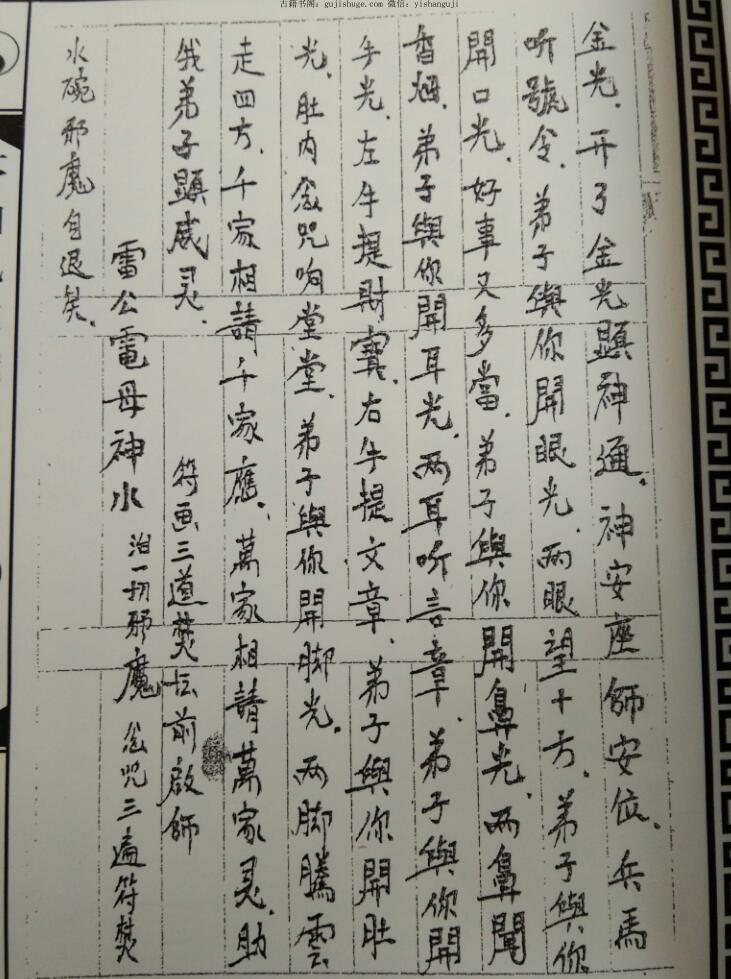 古籍书阁: gujishuge.com 微信: yishanguji
金光、开了金光顯神通、神安座師安位、兵馬
听號令、弟子與你開眼光、两眼望十方、弟子與你
開口光、好事又多當、弟子與你開鼻光、两鼻聞
香烟、弟子與你開耳光、两耳听言章、弟子與你開
手光、左手提財寳、右手提文章、弟子與你開肚
光、肚内念咒响堂堂、弟子與你開脚光、两脚騰雲
走四方、千家相請千家應、萬家相請萬家灵、助
我弟子顕威灵、 符画三道焚坛前啟師
雷公電母神水 治一切邪魔 念咒三遍符焚
水碗邪魔自退矣、